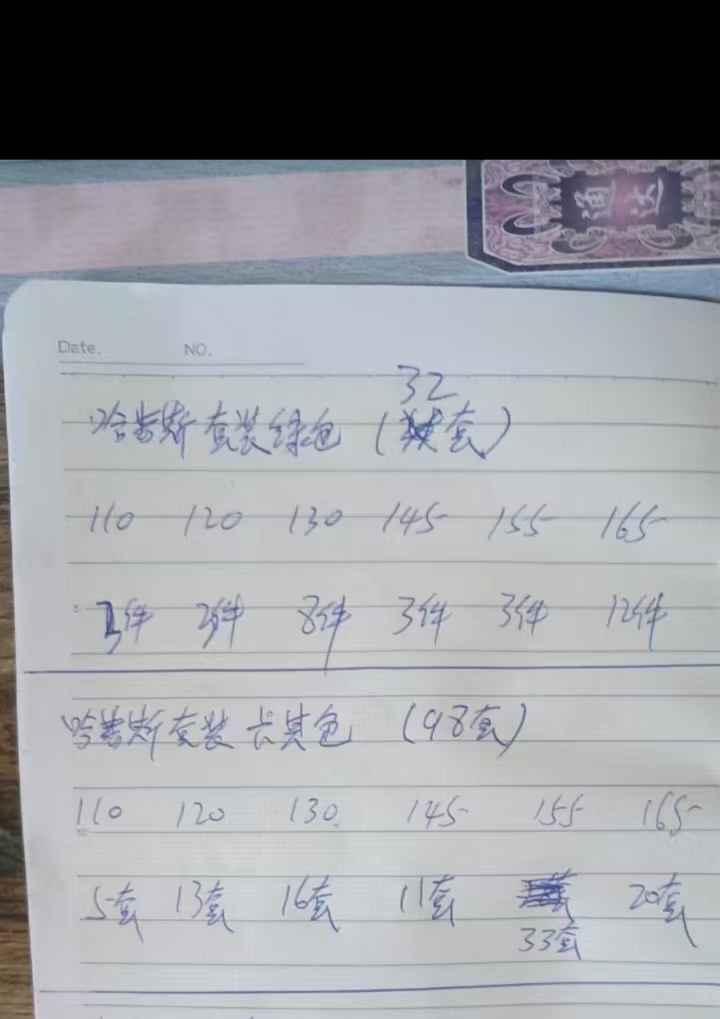 通达
Date. NO.
32
哈普斯套装绿色（套）
110 120 130 145 155 165
3件 3件 8件 3件 3件 12件
哈普斯套装 卡其色 （98套）
110 120 130 145 155 165
5套 13套 16套 11套 20套
33套